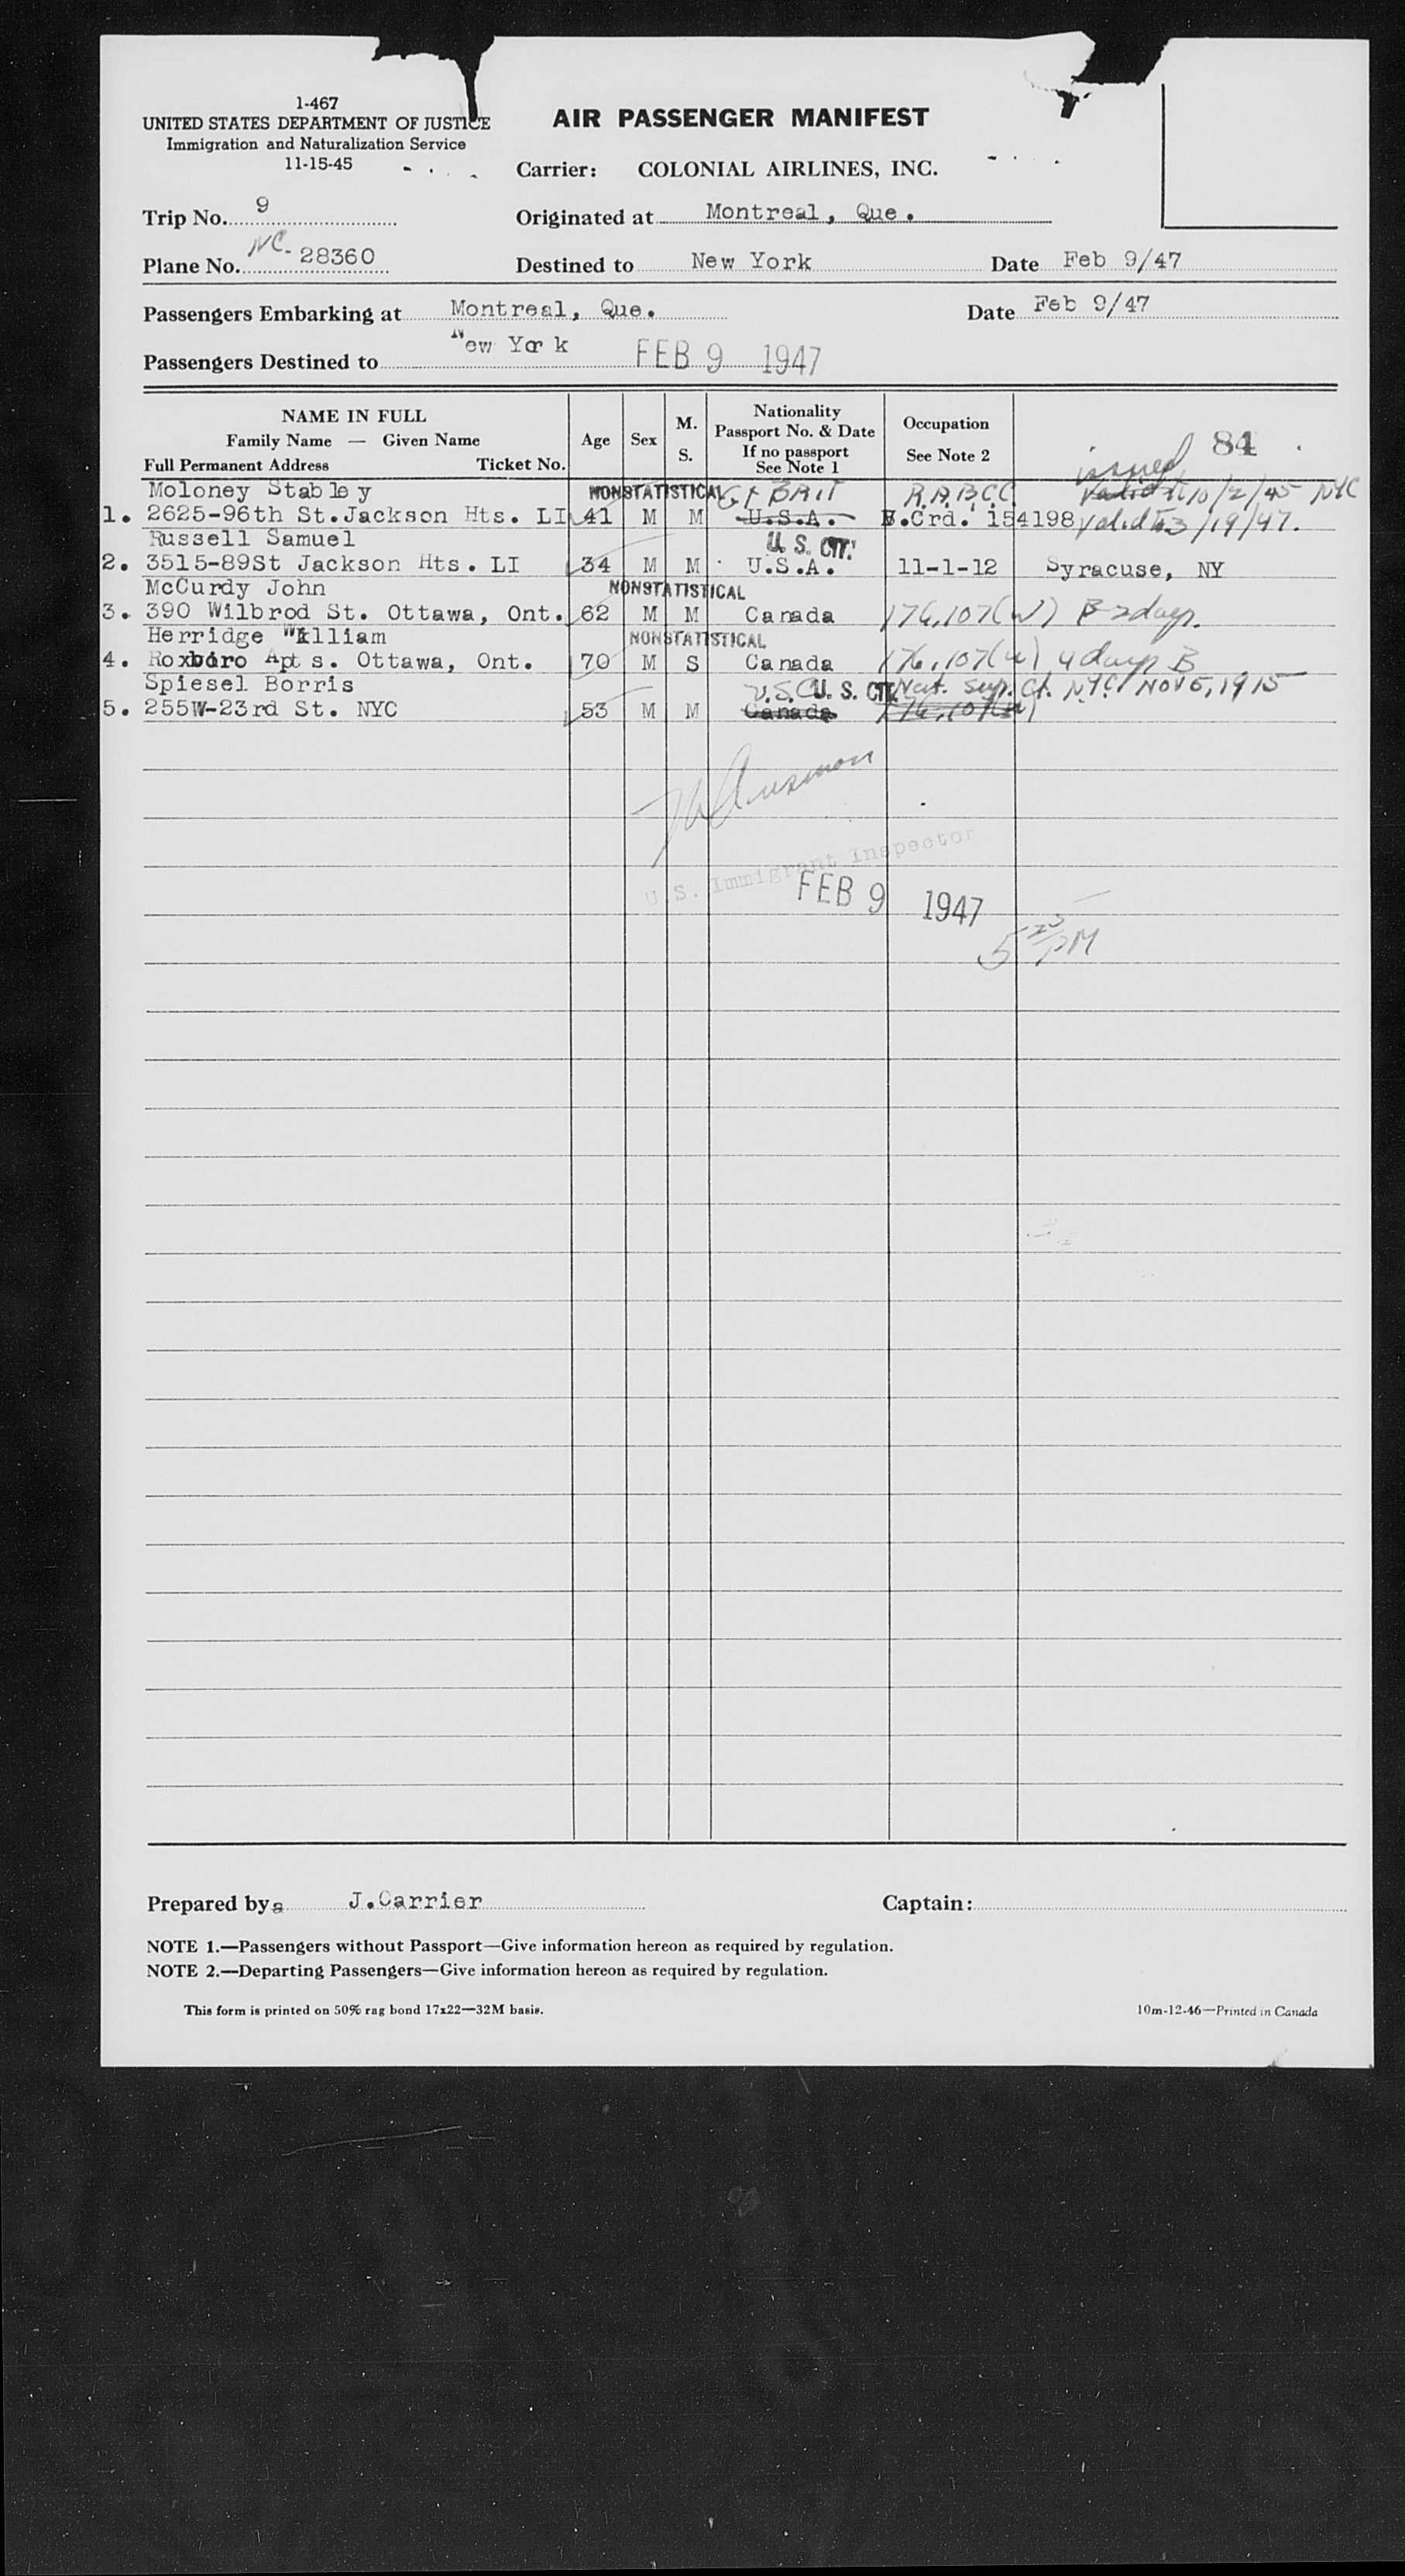 1-467
UNITED STATES DEPARTMENT OF JUSTICE
Immigration and Naturalization Service
11-15-45
AIR PASSENGER MANIFEST
Carrier: COLONIAL AIRLINES, INC.
Trip No. 9
Originated at Montreal, Que.
Plane No. NC- 28360
Destined to New York Date Feb 9/47
Passengers Embarking at Montreal, Que. Date Feb 9/47
Passengers Destined to New York FEB 9 1947
NAME IN FULL
Family Name — Given Name
Full Permanent Address Ticket No.
Age
Sex
M.
S.
Nationality
Passport No. & Date
If no passport
See Note 1
Occupation
See Note 2
84
issued
Moloney Stabley NONSTATISTICAL Gt BRIT R.A.B.C.C. Valid to 10/2/45 NYC
1. 2625-96th St.Jackson Hts. LI 41 M M U.S.A. B.Crd. 154198 valid to 3/19/47.
Russell Samuel U. S. CIT.
2. 3515-89St Jackson Hts. LI 34 M M U.S.A. 11-1-12 Syracuse, NY
McCurdy John NONSTATISTICAL
3. 390 Wilbrod St. Ottawa, Ont. 62 M M Canada 176,107(W) B 2 days.
Herridge William NONSTATISTICAL
4. Roxboro Apts. Ottawa, Ont. 70 M S Canada 176,107(W) 4 days B
Spiesel Borris U.S.C. U. S. CIT. Nat. Sup. Ct. NYC Nov 5, 1915
5. 255W-23rd St. NYC 53 M M Canada 176,107(W)
U.S. Immigrant Inspector
FEB 9 1947
5 25 PM
Prepared by J.Carrier
Captain:
NOTE 1.—Passengers without Passport—Give information hereon as required by regulation.
NOTE 2.—Departing Passengers—Give information hereon as required by regulation.
This form is printed on 50% rag bond 17x22—32M basis.
10m-12-46—Printed in Canada